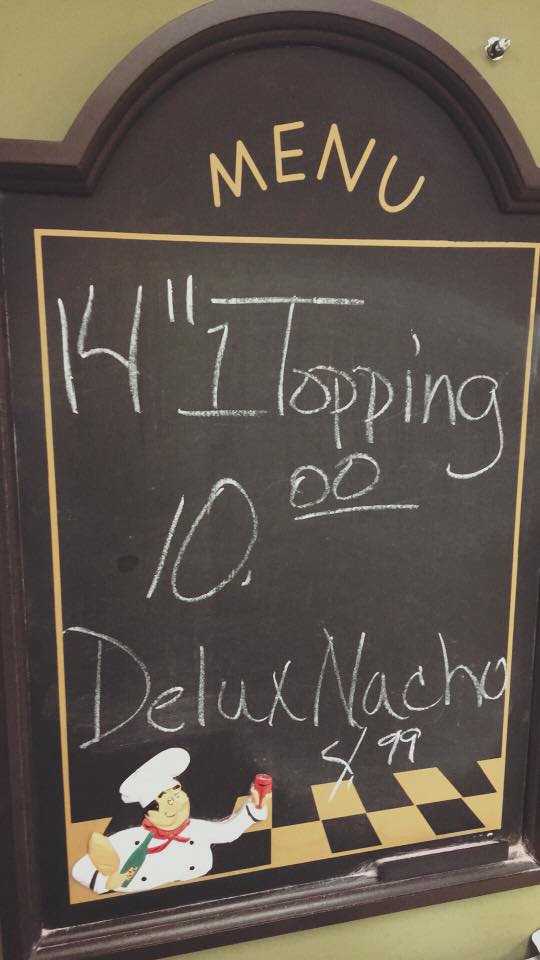 MENU
14" 1 Topping
10.00
Delux Nacho
.99